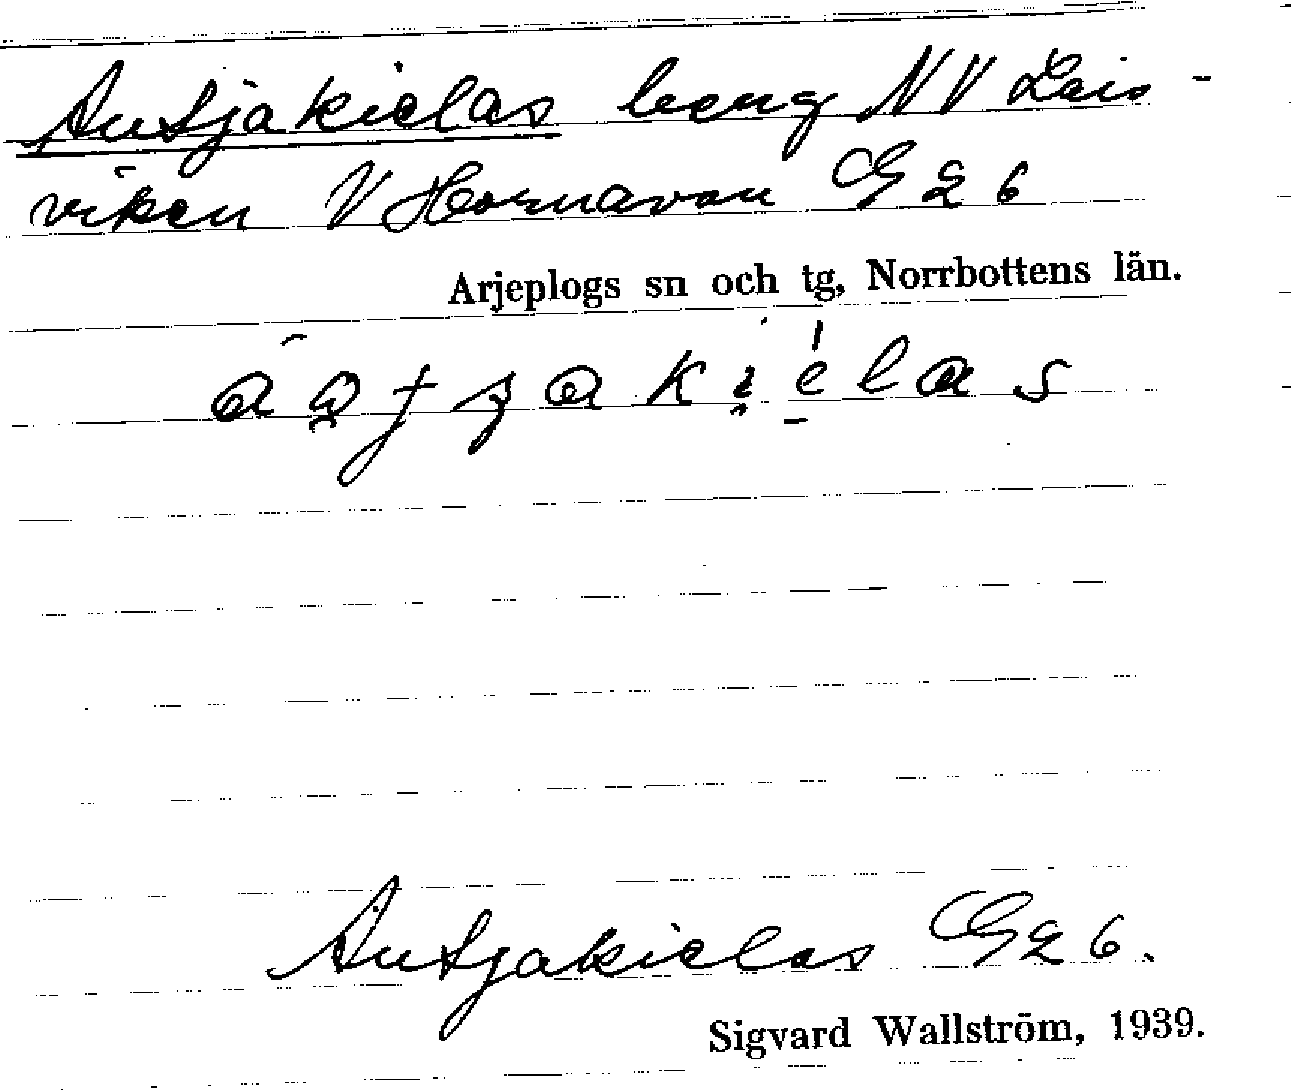 Autjakielas berg NV Lais-
viken V Hornavan G 26
Arjeplogs sn och tg, Norrbottens län.
Autjakielas G 26.
Sigvard Wallström, 1939.